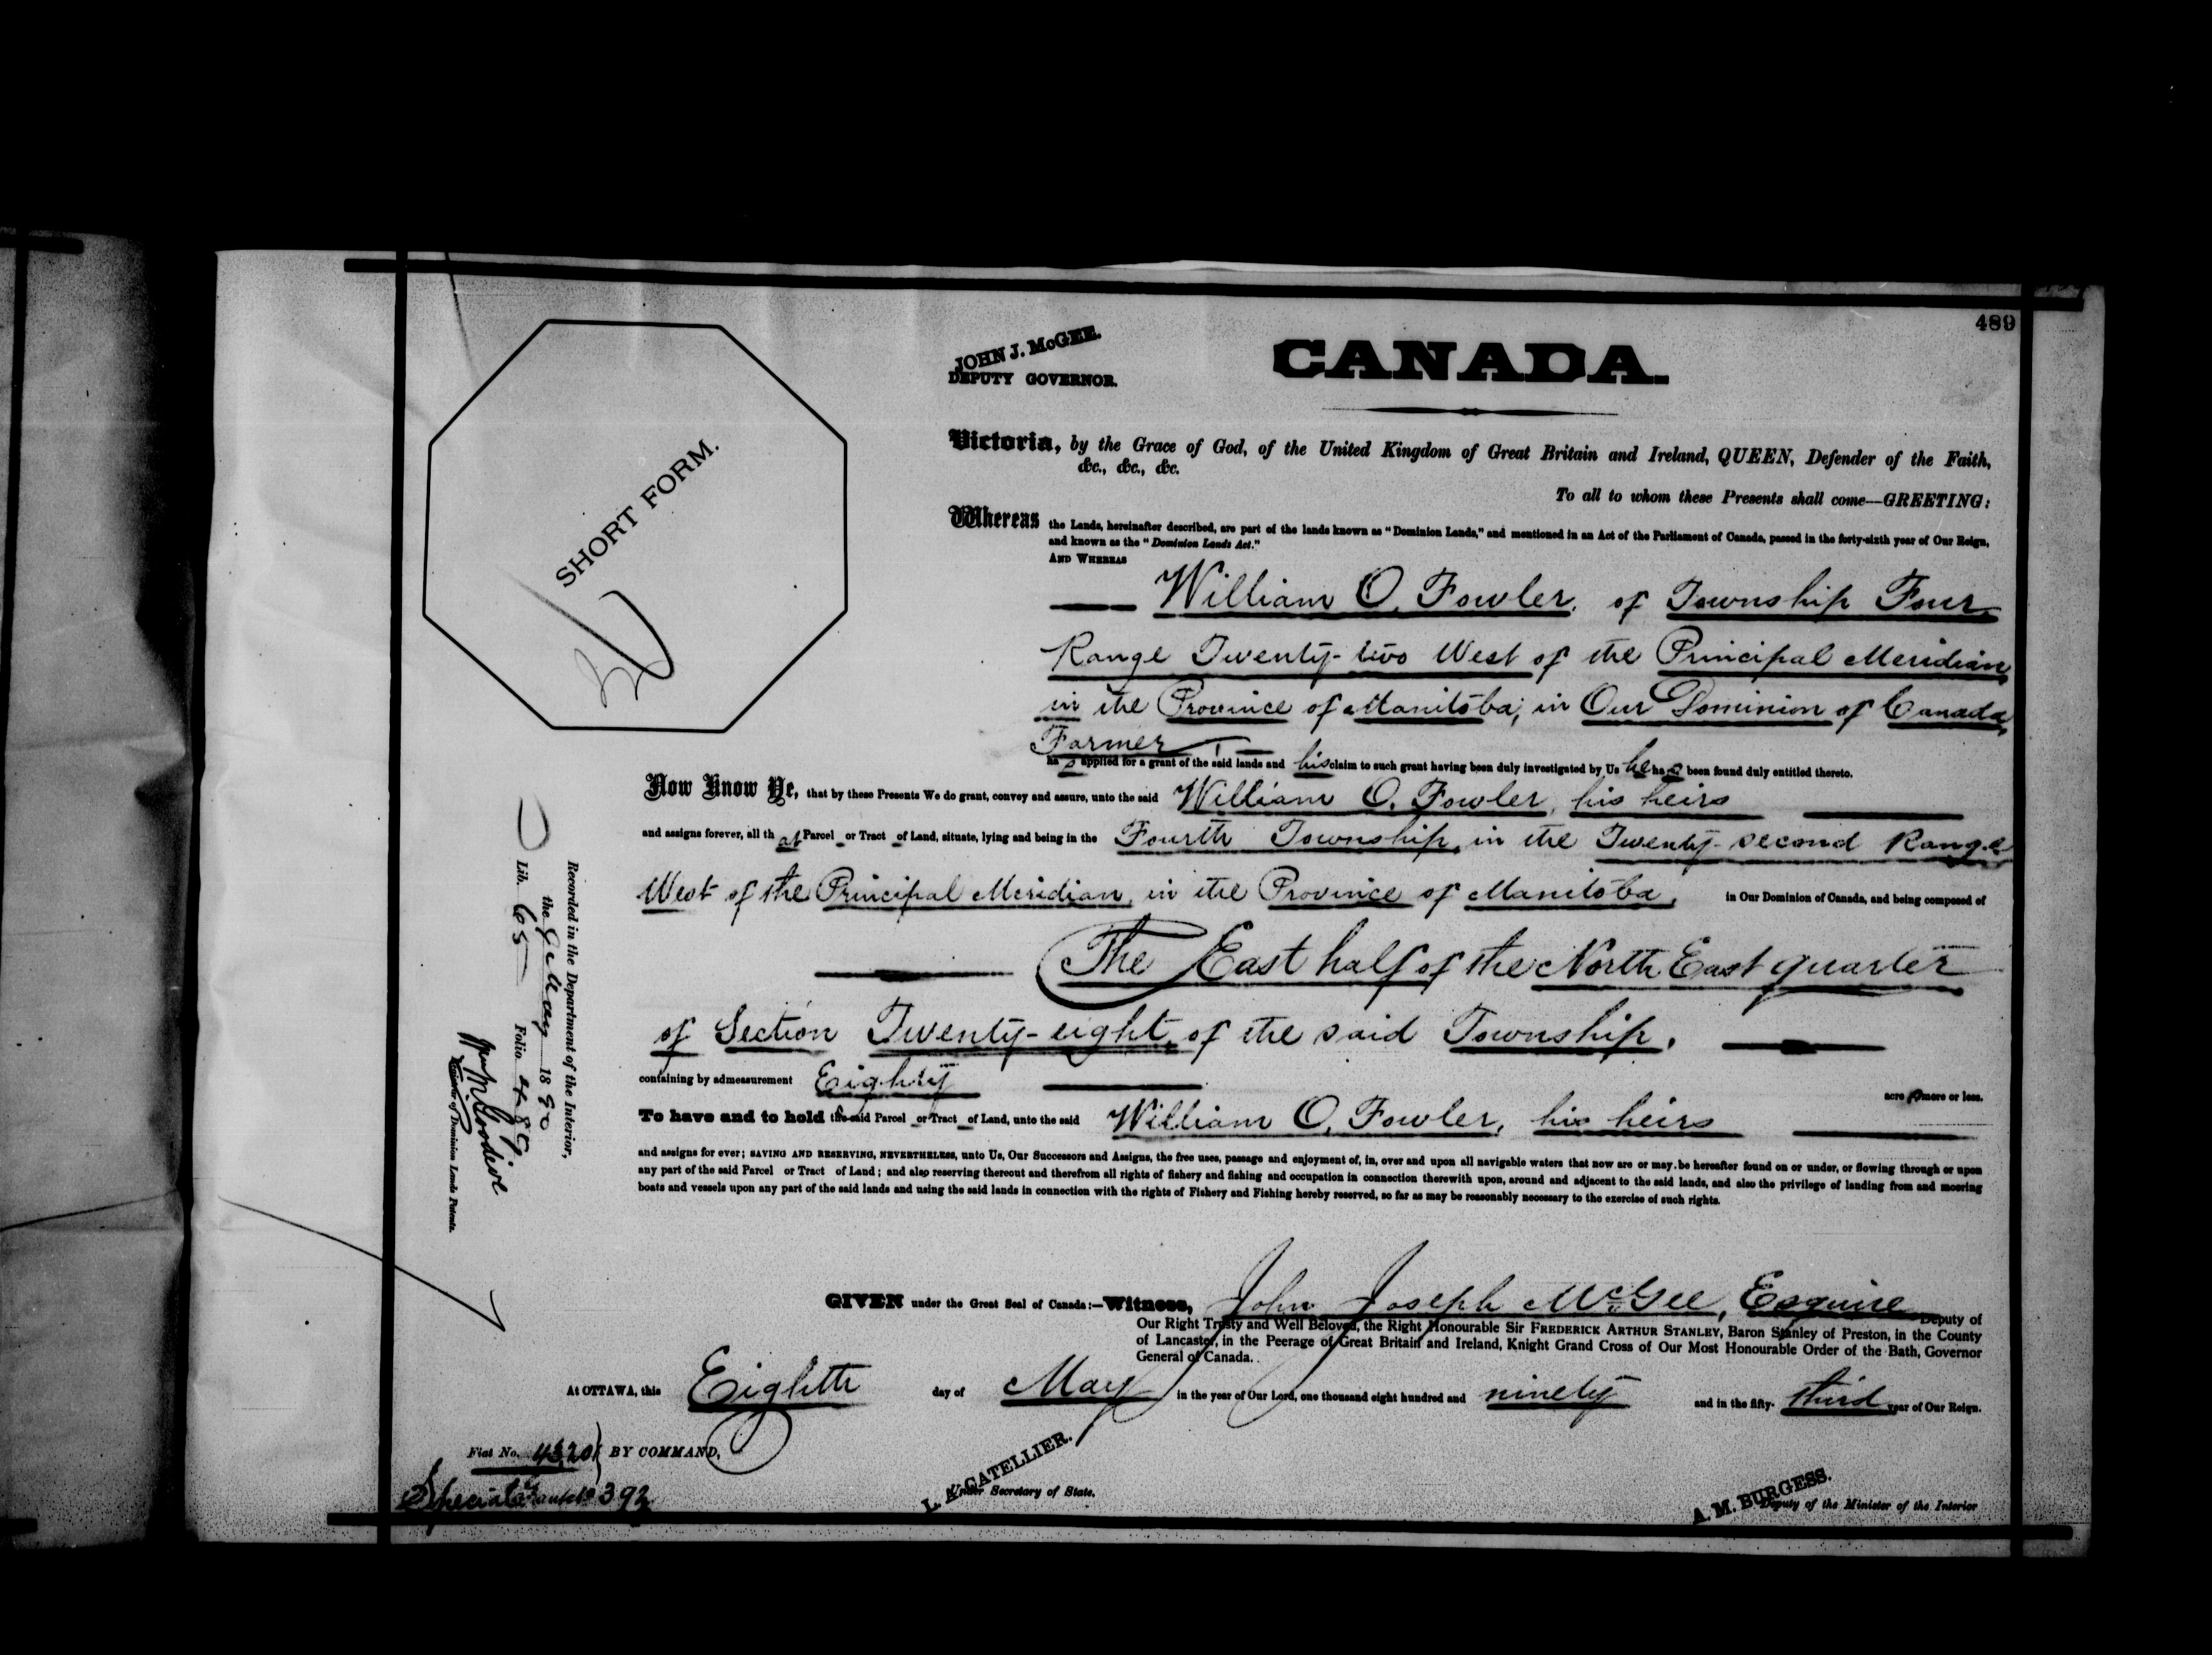 489
JOHN J. McGEE.
DEPUTY GOVERNOR.
CANADA.
SHORT FORM.
Victoria, by the Grace of God, of the United Kingdom of Great Britain and Ireland, QUEEN, Defender of the Faith,
&c., &c., &c.
To all to whom these Presents shall come—GREETING:
Whereas the Lands, hereinafter described, are part of the lands known as "Dominion Lands," and mentioned in an Act of the Parliament of Canada, passed in the forty-sixth year of Our Reign,
and known as the "Dominion Lands Act."
AND WHEREAS
William O. Fowler, of Township Four
Range Twenty-two West of the Principal Meridian
in the Province of Manitoba, in Our Dominion of Canada,
Farmer
has applied for a grant of the said lands and his claim to such grant having been duly investigated by Us he has been found duly entitled thereto.
Now Know Ye, that by these Presents We do grant, convey and assure, unto the said William O. Fowler, his heirs
and assigns forever, all that Parcel or Tract of Land, situate, lying and being in the Fourth Township, in the Twenty-second Range
West of the Principal Meridian, in the Province of Manitoba, in Our Dominion of Canada, and being composed of
The East half of the North East quarter
of Section Twenty-eight, of the said Township.
containing by admeasurement Eighty acres more or less.
To have and to hold the said Parcel or Tract of Land, unto the said William O. Fowler, his heirs
and assigns for ever; SAVING AND RESERVING, NEVERTHELESS, unto Us, Our Successors and Assigns, the free uses, passage and enjoyment of, in, over and upon all navigable waters that now are or may be hereafter found on or under, or flowing through or upon
any part of the said Parcel or Tract of Land; and also reserving thereout and therefrom all rights of fishery and fishing and occupation in connection therewith upon, around and adjacent to the said lands, and also the privilege of landing from and mooring
boats and vessels upon any part of the said lands and using the said lands in connection with the rights of Fishery and Fishing hereby reserved, so far as may be reasonably necessary to the exercise of such rights.
Recorded in the Department of the Interior,
the 9 May 1890
Lib. 65 Folio 489
Wm M. Goodeve
Registrar of Dominion Lands Patents.
GIVEN under the Great Seal of Canada:—Witness, John Joseph McGee, Esquire Deputy of
Our Right Trusty and Well Beloved, the Right Honourable Sir FREDERICK ARTHUR STANLEY, Baron Stanley of Preston, in the County
of Lancaster, in the Peerage of Great Britain and Ireland, Knight Grand Cross of Our Most Honourable Order of the Bath, Governor
General of Canada.
At OTTAWA, this Eighth day of May in the year of Our Lord, one thousand eight hundred and ninety and in the fifty-third year of Our Reign.
Fiat No. 4320 BY COMMAND,
Special Grant No 392
L. A. CATELLIER.
Under Secretary of State.
A. M. BURGESS.
Deputy of the Minister of the Interior